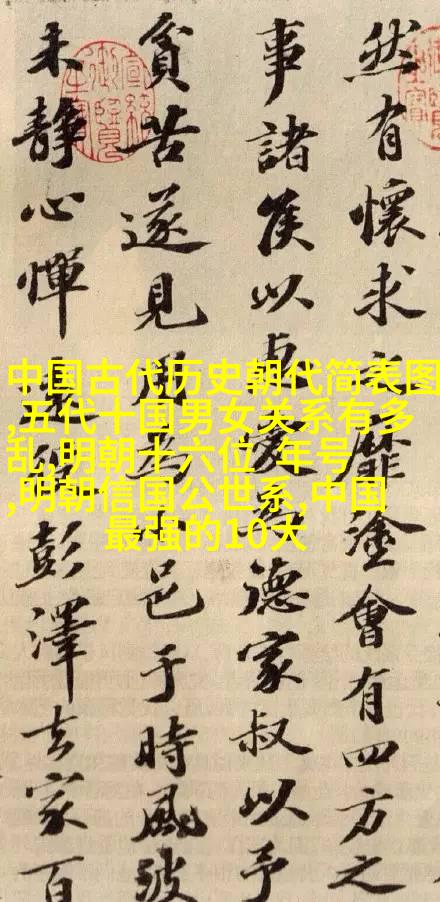 然有懷求之靡塗會有四方之
事諸侯以愛為德家叔以予
貧苦遂見為邑于時風波
未靜心憚彭澤去家百
中国古代历史朝代简表图
,五代十国男女关系有多
乱,明朝十六位 年号
,明朝信国公世系,中国
最强的10大